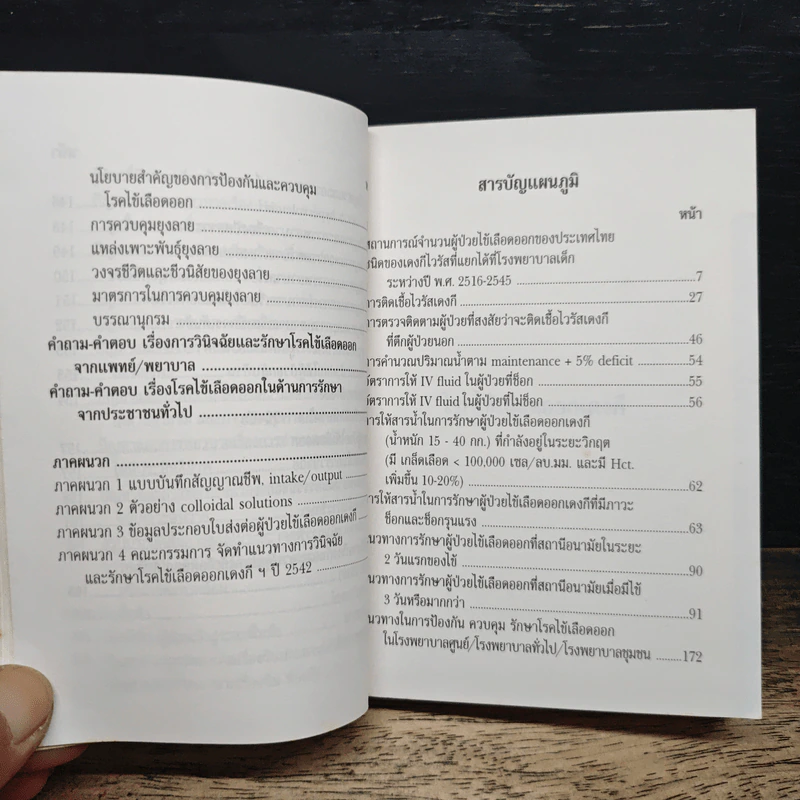 นโยบายสำคัญของการป้องกันและควบคุม
โรคไข้เลือดออก
การควบคุมยุงลาย
แหล่งเพาะพันธุ์ยุงลาย
วงจรชีวิตและชีวนิสัยของยุงลาย
มาตรการในการควบคุมยุงลาย
บรรณานุกรม
คำถาม-คำตอบ เรื่องการวินิจฉัยและรักษาโรคไข้เลือดออก
จากแพทย์/พยาบาล
คำถาม-คำตอบ เรื่องโรคไข้เลือดออกในด้านการรักษา
จากประชาชนทั่วไป
ภาคผนวก
ภาคผนวก 1 แบบบันทึกสัญญาณชีพ, intake/output
ภาคผนวก 2 ตัวอย่าง colloidal solutions
ภาคผนวก 3 ข้อมูลประกอบใบส่งต่อผู้ป่วยไข้เลือดออกเดงกี
ภาคผนวก 4 คณะกรรมการ จัดทำแนวทางการวินิจฉัย
และรักษาโรคไข้เลือดออกเดงกี ฯ ปี 2542
สารบัญแผนภูมิ
หน้า
สถานการณ์จำนวนผู้ป่วยไข้เลือดออกของประเทศไทย
ชนิดของเดงกีไวรัสที่แยกได้ที่โรงพยาบาลเด็ก
ระหว่างปี พ.ศ. 2516-2545 7
การติดเชื้อไวรัสเดงกี 27
การตรวจติดตามผู้ป่วยที่สงสัยว่าจะติดเชื้อไวรัสเดงกี
ที่ตึกผู้ป่วยนอก 46
การคำนวณปริมาณน้ำตาม maintenance + 5% deficit 54
อัตราการให้ IV fluid ในผู้ป่วยที่ช็อก 55
อัตราการให้ IV fluid ในผู้ป่วยที่ไม่ช็อก 56
การให้สารน้ำในการรักษาผู้ป่วยไข้เลือดออกเดงกี
(น้ำหนัก 15 - 40 กก.) ที่กำลังอยู่ในระยะวิกฤต
(มี เกล็ดเลือด < 100,000 เซล/ลบ.มม. และมี Hct.
เพิ่มขึ้น 10-20%) 62
การให้สารน้ำในการรักษาผู้ป่วยไข้เลือดออกเดงกีที่มีภาวะ
ช็อกและช็อกรุนแรง 63
แนวทางการรักษาผู้ป่วยไข้เลือดออกที่สถานีอนามัยในระยะ
2 วันแรกของไข้ 90
แนวทางการรักษาผู้ป่วยไข้เลือดออกที่สถานีอนามัยเมื่อมีไข้
3 วันหรือมากกว่า 91
แนวทางในการป้องกัน ควบคุม รักษาโรคไข้เลือดออก
ในโรงพยาบาลศูนย์/โรงพยาบาลทั่วไป/โรงพยาบาลชุมชน 172